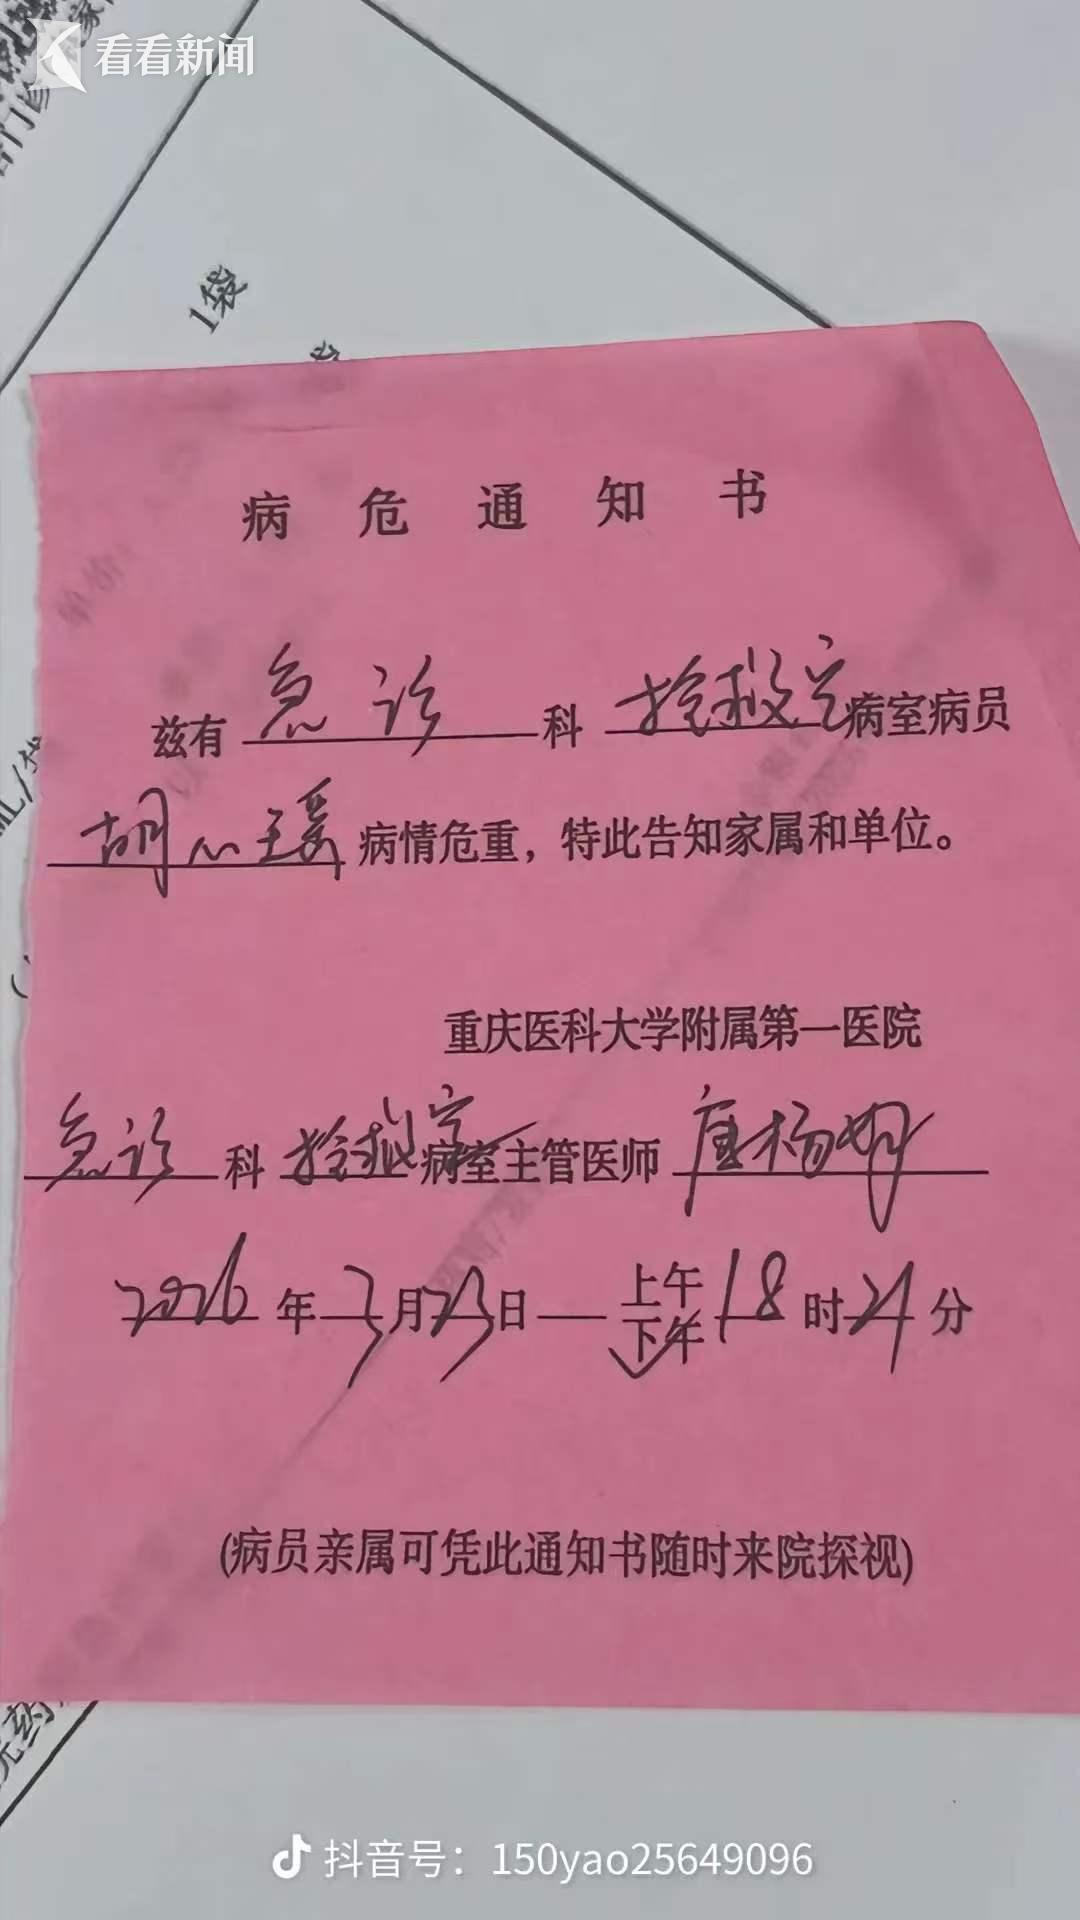 看看新闻
1袋
病危通知书
兹有 急诊 科 抢救室 病室病员
胡心瑶 病情危重，特此告知家属和单位。
重庆医科大学附属第一医院
急诊 科 抢救室 病室主管医师 唐杨
2026 年 3 月 23 日 上午
下午 18 时 21 分
(病员亲属可凭此通知书随时来院探视)
抖音号：150yao25649096